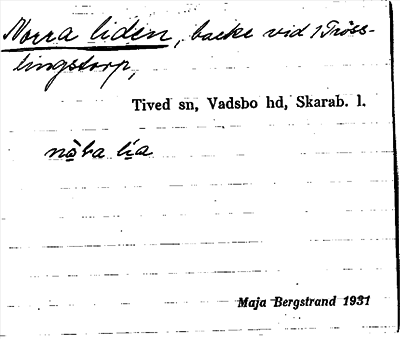 Norra liden, backe vid 1 Tröss-
lingstorp,
Tived sn, Vadsbo hd, Skarab. l.
nȧ̀ra lía
Maja Bergstrand 1931